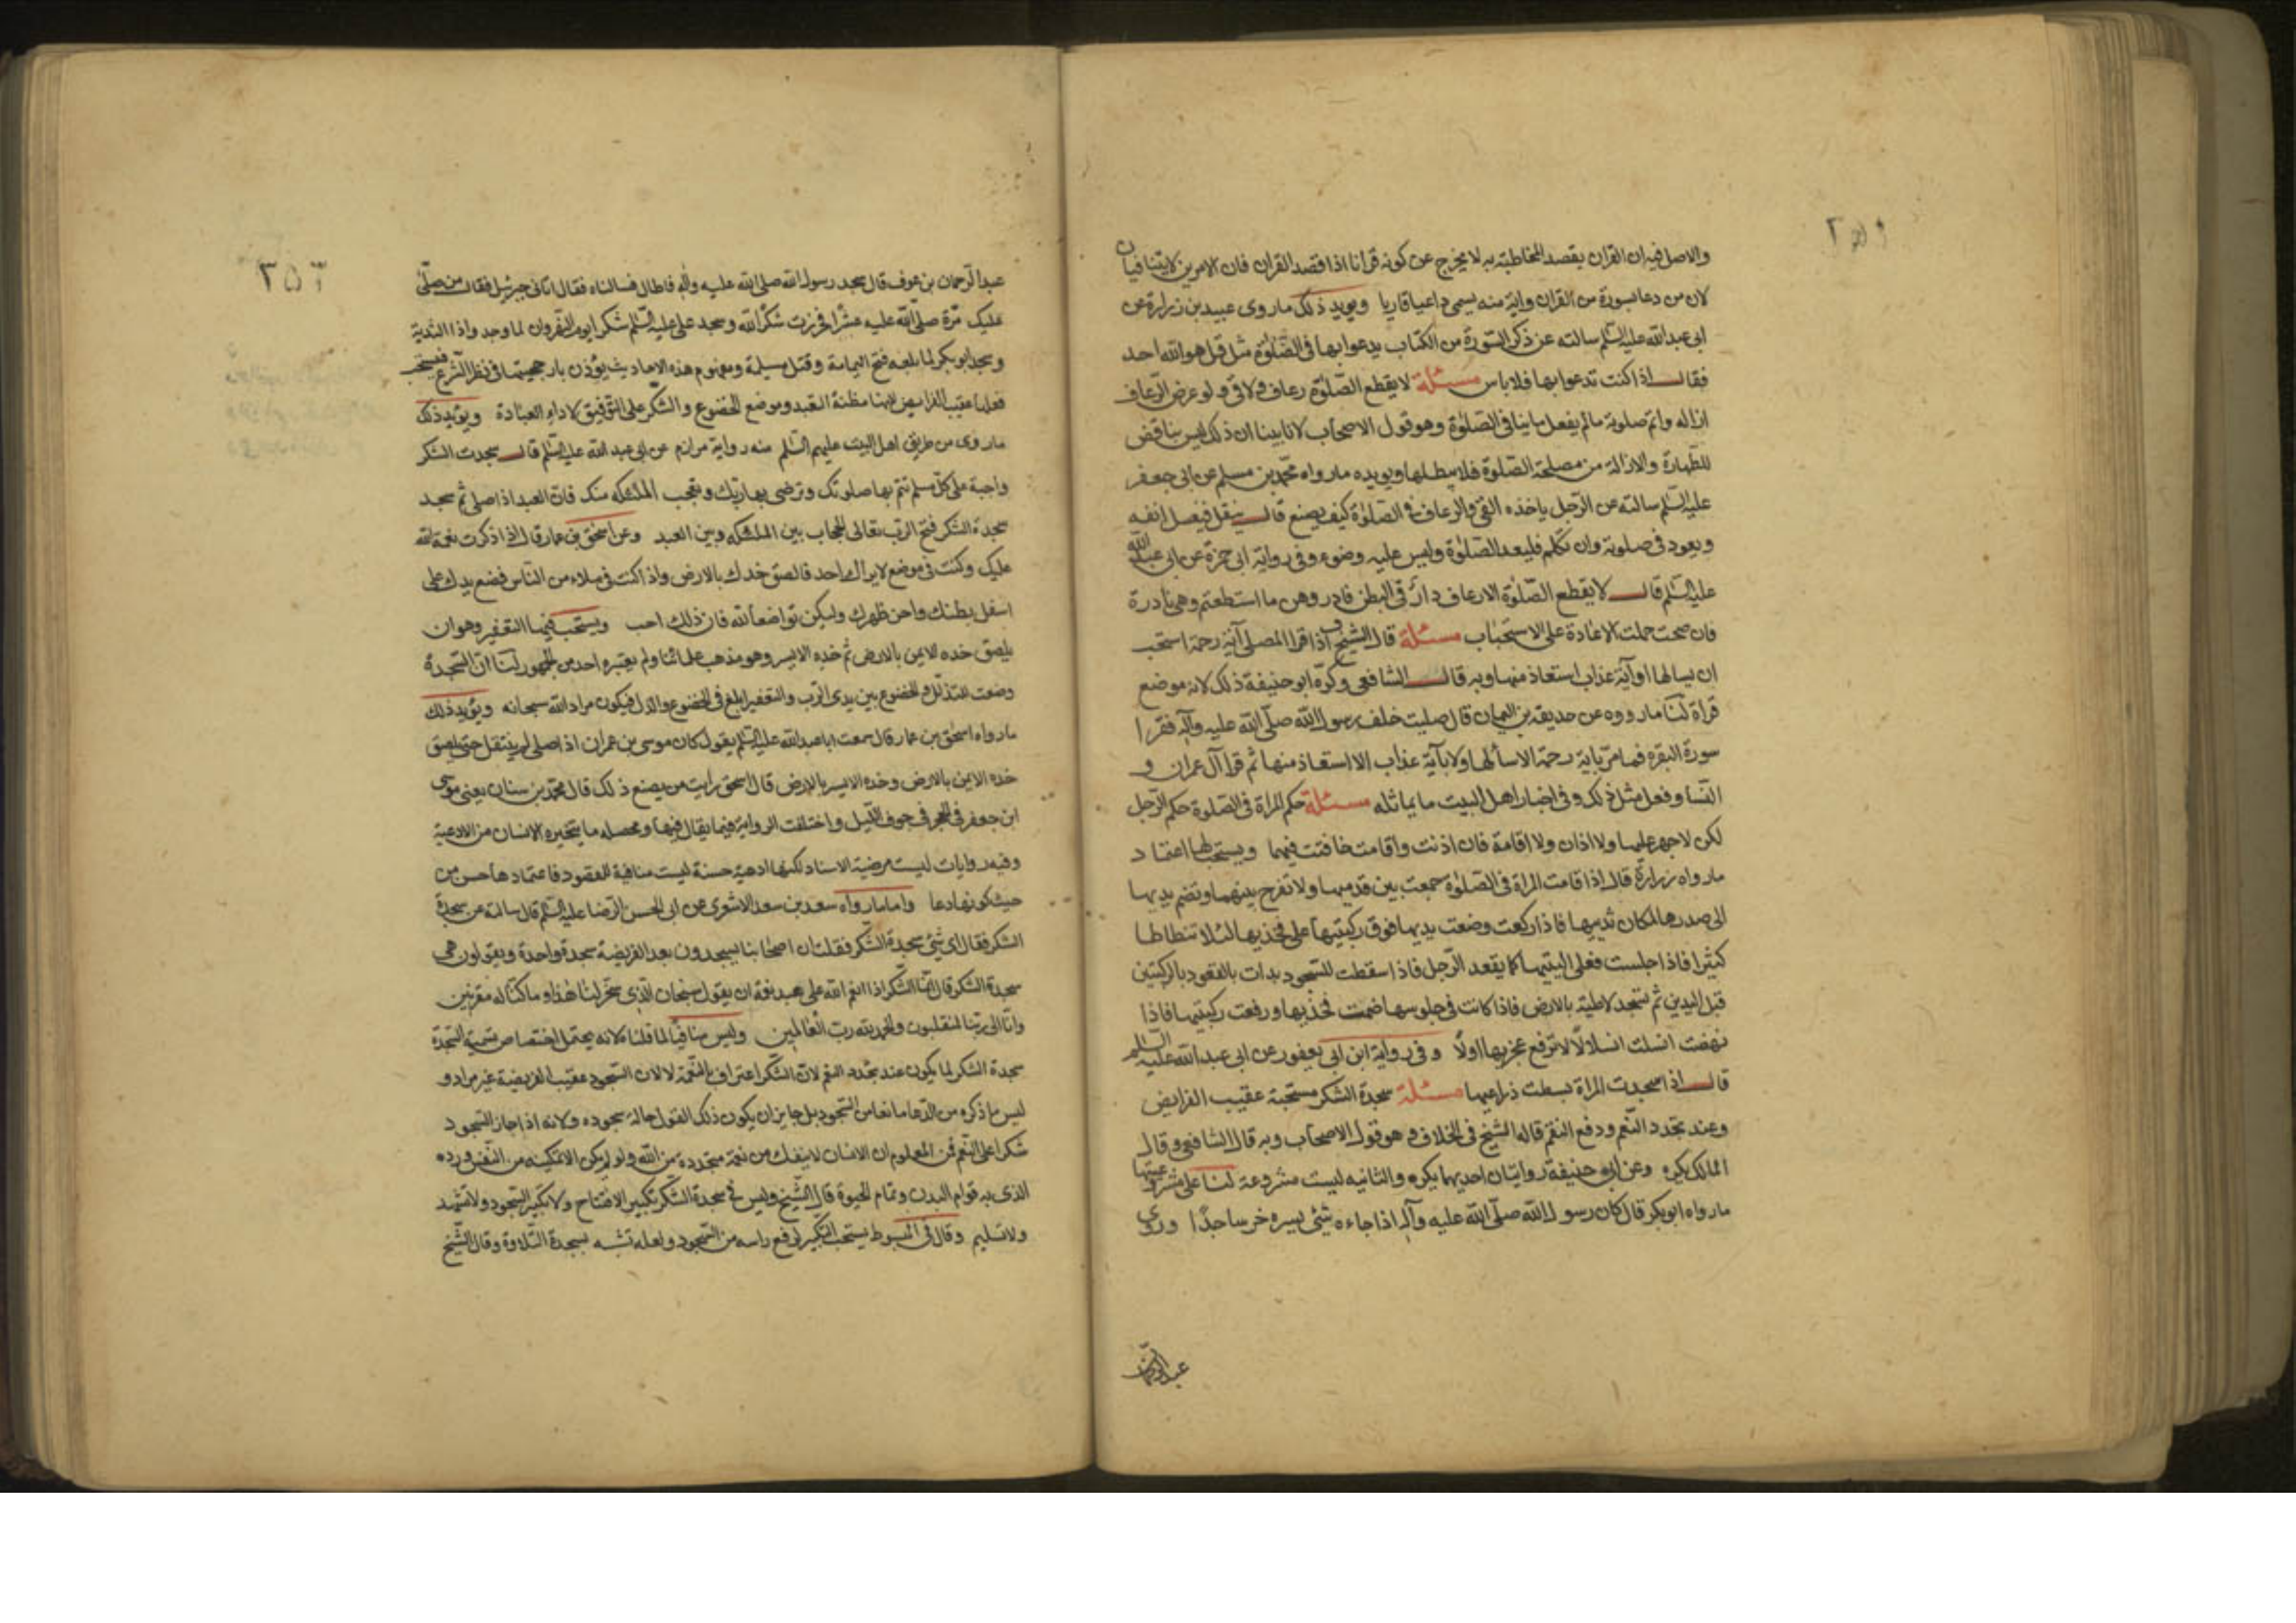 والاصل فيه ان القران بقصد المخاطبة به لا يخرج عن كونه قرانا اذا قصد القران فان الامرين لا يتنافيان
لان من دعا بسورة من القران واية منه يسمى داعيا قاريا ويويد ذلك ما روى عبيد بن زرارة عن
ابى عبدالله عليه السلم سالته عن ذكر السورة من الكتاب يدعوا بها فى الصلوة مثل قل هو الله احد
فقال اذا كنت تدعوا بها فلا باس مسئلة لا يقطع الصلوة رعاف ولا قى ولو عرض الرعاف
ازاله واتم صلوته ما لم يفعل ما ينافى الصلوة وهو قول الاصحاب لانا بينا ان ذلك ليس بناقض
للطهارة والازالة من مصلحة الصلوة فلا يبطلها ويويده ما رواه محمد بن مسلم عن ابى جعفر
عليه السلم سالته عن الرجل ياخذه القى والرعاف فى الصلوة كيف يصنع قال ينفتل فيغسل انفه
ويعود فى صلوته وان تكلم فليعد الصلوة وليس عليه وضوء وفى رواية ابى حمزة عن ابى عبد الله
عليه السلم قال لا يقطع الصلوة الا رعاف وازّ فى البطن فادروهن ما استطعتم وهى نادرة
فان صحت حملت الاعادة على الاستحباب مسئلة قال الشيخ ف اذا قرا المصلى آية رحمة استحب
ان يسالها او آية عذاب استعاذ منها وبه قال الشافعى وكرّه ابو حنيفة ذلك لانه موضع
قراة لنا ما رووه عن حديقة بن اليمان قال صليت خلف رسول الله صلى الله عليه وآله فقرا
سورة البقره فما مرّ باية رحمة الا سألها ولا بآية عذاب الا استعاذ منها ثم قرا آل عمران و
النسا وفعل مثل ذلك وفى اخبار اهل البيت ما يماثله مسئلة حكم المراة فى الصلوة حكم الرجل
لكن لا جهر عليها ولا اذان ولا اقامة فان اذنت واقامت خافتت فيهما ويستحب لها اعتماد
ما رواه زرارة قال اذا قامت المراة فى الصلوة جمعت بين قدميها ولا تفرج بينهما وتضم يديها
الى صدرها لمكان ثدييها فاذا ركعت وضعت يديها فوق ركبتيها على فخذيها لئلا تتطاطا
كثيرا فاذا جلست فعلى اليتيها كما يقعد الرجل فاذا سقطت للسجود بدات بالقعود بالركبتين
قبل اليدين ثم تسجد لاطية بالارض فاذا كانت فى جلوسها ضمت فخذيها ورفعت ركبتيها فاذا
نهضت انسلت انسلالا لا ترفع عجزيها اولا وفى رواية ابن ابى يعفور عن ابى عبدالله عليه السلم
قال اذا سجدت المراة بسطت ذراعيها مسئلة سجدة الشكر مستحبة عقيب الفرايض
وعند تجدد النعم ودفع النقم قاله الشيخ فى الخلاف وهو قول الاصحاب وبه قال الشافعى وقال
المالك يكره وعن ابى حنيفة روايتان احديهما يكره والثانيه ليست مشروعة لنا على شرعيتها
ما رواه ابو بكر قال كان رسول الله صلى الله عليه وآله اذا جاءه شئ يسره خر ساجدًا وروى
عبدالرحمان
٢٥٢
عبد الرحمان بن عوف قال سجد رسول الله صلى الله عليه واله فاطال فسالناه فقال اتانى جبرئيل فقال من صلى
عليك مرة صلى الله عليه عشرًا فخررت شكرًا لله وسجد على عليه السلم شكرا يوم النهروان لما وجد واذا الثدية
وسجد ابو بكر لما بلغه فتح اليمامة وقتل مسيلمة ومفهوم هذه الاحاديث يؤذن بارجحيتها فى نظر الشرع فيستحب
فعلها عقيب الفرايض لانها مظنة التعبد وموضع الخضوع والشكر على التوفيق لاداء العبادة ويؤيد ذلك
ما روى من طريق اهل البيت عليهم السلم منه رواية مرازم عن ابى عبد الله عليه السلم قال سجدت الشكر
واجبة على كل مسلم تتم بها صلوتك وترضى بها ربك وتعجب الملئكه منك فان العبد اذا صلى ثم سجد
سجدة الشكر فتح الرب تعالى الحجاب بين الملئكه وبين العبد وعن اسحق بن عمار قال اذا ذكرت نعمة الله
عليك وكنت فى موضع لا يراك احد فالصق خدك بالارض واذا كنت فى ملاء من الناس فضع يدك على
اسفل بطنك واحن ظهرك وليكن تواضعا لله فان ذلك احب ويستحب فيها التعفير وهو ان
يلصق خده الايمن بالارض ثم خده الايسر وهو مذهب علمائنا ولم يعتبره احد من الجمهور لنا ان السجدة
وضعت للتذلل والخضوع بين يدى الرب والتعفير ابلغ فى الخضوع والذل فيكون مراد الله سبحانه ويؤيد ذلك
ما رواه اسحق بن عمار قال سمعت ابا عبدالله عليه السلم يقول كان موسى بن عمران اذا صلى لم ينتقل حتى يلصق
خده الايمن بالارض وخده الايسر بالارض قال اسحق رايت من يصنع ذلك قال محمد بن سنان يعنى موسى
ابن جعفر فى الحجر فى جوف الليل واختلفت الرواية فيما يقال فيها ومحصله ما يتخيره الانسان من الادعية
وفيه روايات ليست مرضية الاسناد لكنها ادعية حسنة ليست منافية للمقصود فاعتمادها حسن من
حيث كونها دعا واما ما رواه سعد بن سعد الاشعرى عن ابى الحسن الرضا عليه السلم قال سالته عن سجدة
الشكر فقال اى شئ سجدة الشكر فقلت ان اصحابنا يسجدون بعد الفريضة سجدة واحدة ويقولون هى
سجدة الشكر قال انما الشكر اذا انعم الله على عبد نعمة ان يقول سبحان الذى سخر لنا هذا وما كنا له مقرنين
وانا الى ربنا لمنقلبون والحمد لله رب العالمين وليس منافيا لما قلناه لانه يحتمل اختصاص تسمية السجدة
سجدة الشكر لما يكون عند تجدد النعم لان الشكر اعتراف بالنعمة لا لان السجود عقيب الفريضة غير مراد و
ليس ما ذكره من الدعا مانعا من السجود بل جايز ان يكون ذلك القول حالة سجوده ولانه اذا جاز السجود
شكرا على النعم فمن المعلوم ان الانسان لا ينفك من نعمة متجددة من الله ولو لم يكن الا تمكينه من النفس ورده
الذى به قوام البدن وتمام الحيوة قال الشيخ وليس فى سجدة الشكر تكبير الافتتاح ولا تكبير السجود ولا تشهد
ولا تسليم وقال فى المبسوط يستحب التكبير لرفع راسه من السجود ولعله تشبه بسجدة التلاوة وقال الشيخ